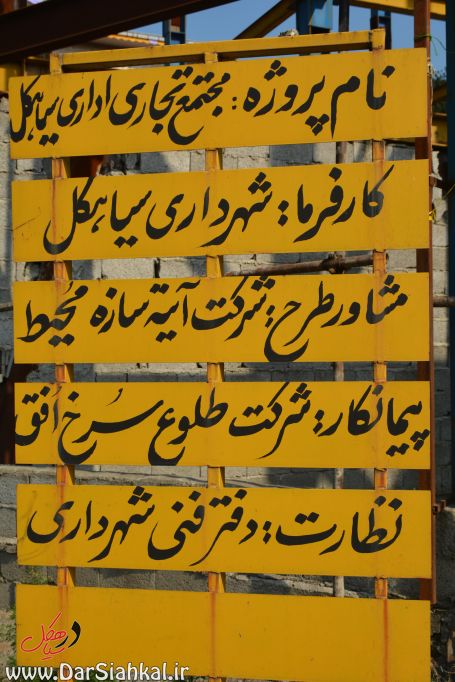 نام پروژه : مجتمع تجاری اداری سیاهکل
کارفرما : شهرداری سیاهکل
مشاور طرح : شرکت آتیه سازه مُحیط
پیمانکار : شرکت طلوع سُرخ اُفق
نظارت : دفتر فنی شهرداری
در سیاهکل
www.DarSiahkal.ir